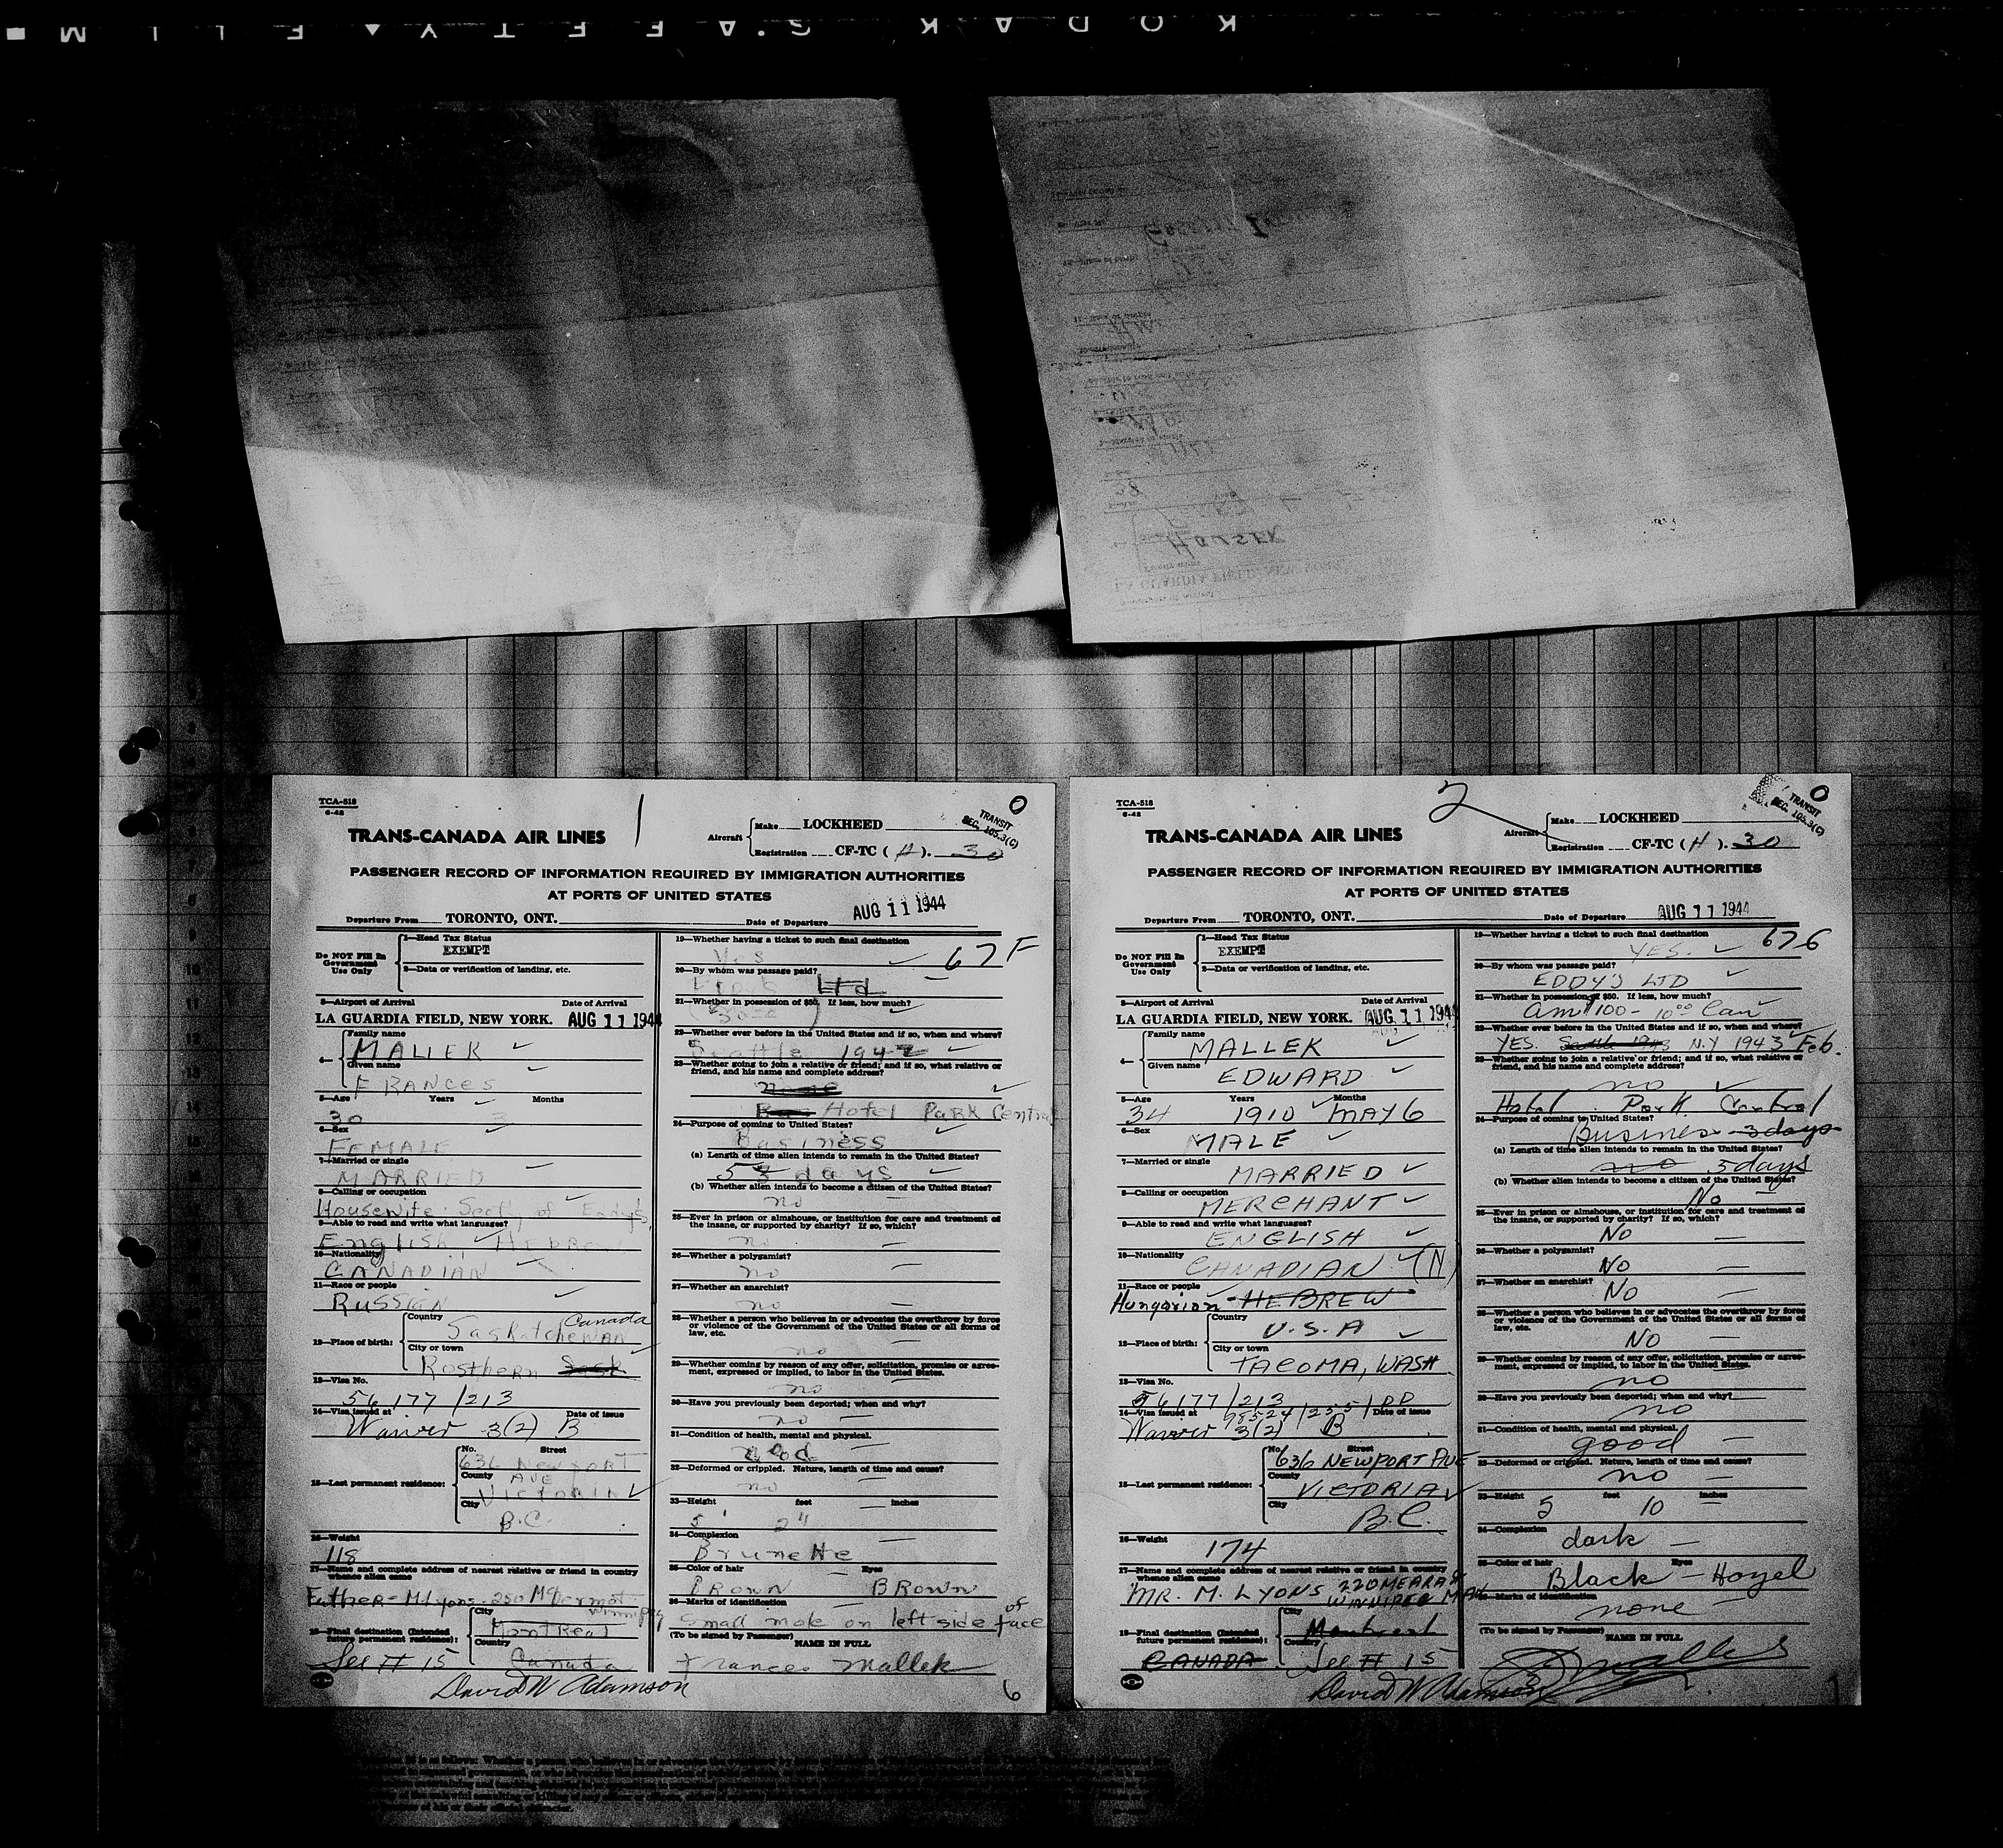 KODAK SAFETY FILM
HOUSER
LA GUARDIA FIELD, NEW YORK
TCA-518
6-42
1
0
TRANSIT
SEC. 105.3(C)
TRANS-CANADA AIR LINES
Aircraft
Make LOCKHEED
Registration CF-TC (H). 30
PASSENGER RECORD OF INFORMATION REQUIRED BY IMMIGRATION AUTHORITIES
AT PORTS OF UNITED STATES
Departure From TORONTO, ONT. Date of Departure AUG 11 1944
Do NOT Fill In
Government
Use Only
1—Head Tax Status
EXEMPT
2—Data or verification of landing, etc.
3—Airport of Arrival Date of Arrival
LA GUARDIA FIELD, NEW YORK. AUG 11 1944
4—
Family name
MALLEK
Given name
FRANCES
5—Age Years Months
30 3
6—Sex
FEMALE
7—Married or single
MARRIED
8—Calling or occupation
Housewife Secty of Eddy's
9—Able to read and write what languages?
English HEBREW
10—Nationality
CANADIAN
11—Race or people
RUSSIAN
12—Place of birth:
Country
Saskatchewan Canada
City or town
Rosthern Sask
13—Visa No.
56177/213
14—Visa issued at Date of issue
Waiver 3(2) B
15—Last permanent residence:
No. Street
636 NEWPORT
County
AVE
VICTORIA
City
B.C.
16—Weight
118
17—Name and complete address of nearest relative or friend in country
whence alien came
Father - M. Lyons - 250 McDermot
Winnipeg
18—Final destination (Intended
future permanent residence):
City
Montreal
Country
Canada
See # 15
David W Adamson
19—Whether having a ticket to such final destination
Yes 67F
20—By whom was passage paid?
Eddy's Ltd
21—Whether in possession of $50. If less, how much?
22—Whether ever before in the United States and if so, when and where?
Seattle 1942
23—Whether going to join a relative or friend; and if so, what relative or
friend, and his name and complete address?
none
Hotel Park Central
24—Purpose of coming to United States?
Business
(a) Length of time alien intends to remain in the United States?
5 days
(b) Whether alien intends to become a citizen of the United States?
no
25—Ever in prison or almshouse, or institution for care and treatment of
the insane, or supported by charity? If so, which?
no
26—Whether a polygamist?
no
27—Whether an anarchist?
no
28—Whether a person who believes in or advocates the overthrow by force
or violence of the Government of the United States or all forms of
law, etc.
no
29—Whether coming by reason of any offer, solicitation, promise or agree-
ment, expressed or implied, to labor in the United States.
no
30—Have you previously been deported; when and why?
no
31—Condition of health, mental and physical.
good
32—Deformed or crippled. Nature, length of time and cause?
no
33—Height feet inches
5' 2"
34—Complexion
Brunette
35—Color of hair Eyes
BROWN BROWN
36—Marks of identification
Small mole on left side of face
(To be signed by Passenger) NAME IN FULL
Frances Mallek
6
TCA-518
6-42
2
0
TRANSIT
SEC. 105.3(C)
TRANS-CANADA AIR LINES
Aircraft
Make LOCKHEED
Registration CF-TC (H). 30
PASSENGER RECORD OF INFORMATION REQUIRED BY IMMIGRATION AUTHORITIES
AT PORTS OF UNITED STATES
Departure From TORONTO, ONT. Date of Departure AUG 11 1944
Do NOT Fill In
Government
Use Only
1—Head Tax Status
EXEMPT
2—Data or verification of landing, etc.
3—Airport of Arrival Date of Arrival
LA GUARDIA FIELD, NEW YORK. AUG 11 1944
4—
Family name
MALLEK
Given name
EDWARD
5—Age Years Months
34 1910 MAY 6
6—Sex
MALE
7—Married or single
MARRIED
8—Calling or occupation
MERCHANT
9—Able to read and write what languages?
ENGLISH
10—Nationality
CANADIAN (N)
11—Race or people
Hungarian HEBREW
12—Place of birth:
Country
U.S.A
City or town
TACOMA, WASH
13—Visa No.
56177/213
98524/255/DD
14—Visa issued at Date of issue
Waiver 3(2) B
15—Last permanent residence:
No. Street
636 NEWPORT AVE
County
VICTORIA
City
B.C.
16—Weight
174
17—Name and complete address of nearest relative or friend in country
whence alien came
MR. M. LYONS 220 MEARA ST
WINNIPEG MAN
18—Final destination (Intended
future permanent residence):
City
Montreal
Country
CANADA See # 15
David W Adamson
19—Whether having a ticket to such final destination
YES. 676
20—By whom was passage paid?
EDDY'S LTD
21—Whether in possession of $50. If less, how much?
Am 100 - 10 00 Can
22—Whether ever before in the United States and if so, when and where?
YES. Seattle 1943 N.Y 1943 Feb.
23—Whether going to join a relative or friend; and if so, what relative or
friend, and his name and complete address?
no
Hotel Park Central
24—Purpose of coming to United States?
Business 3 days
(a) Length of time alien intends to remain in the United States?
no 5 days
(b) Whether alien intends to become a citizen of the United States?
No
25—Ever in prison or almshouse, or institution for care and treatment of
the insane, or supported by charity? If so, which?
No
26—Whether a polygamist?
No
27—Whether an anarchist?
No
28—Whether a person who believes in or advocates the overthrow by force
or violence of the Government of the United States or all forms of
law, etc.
No
29—Whether coming by reason of any offer, solicitation, promise or agree-
ment, expressed or implied, to labor in the United States.
no
30—Have you previously been deported; when and why?
no
31—Condition of health, mental and physical.
good
32—Deformed or crippled. Nature, length of time and cause?
no
33—Height feet inches
5 10
34—Complexion
dark
35—Color of hair Eyes
Black - Hazel
36—Marks of identification
none
(To be signed by Passenger) NAME IN FULL
E Mallek